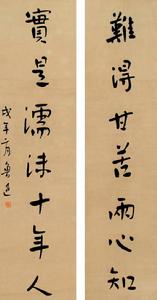 難得甘苦兩心知
實是濡沫十年人
戌年六月魯迅